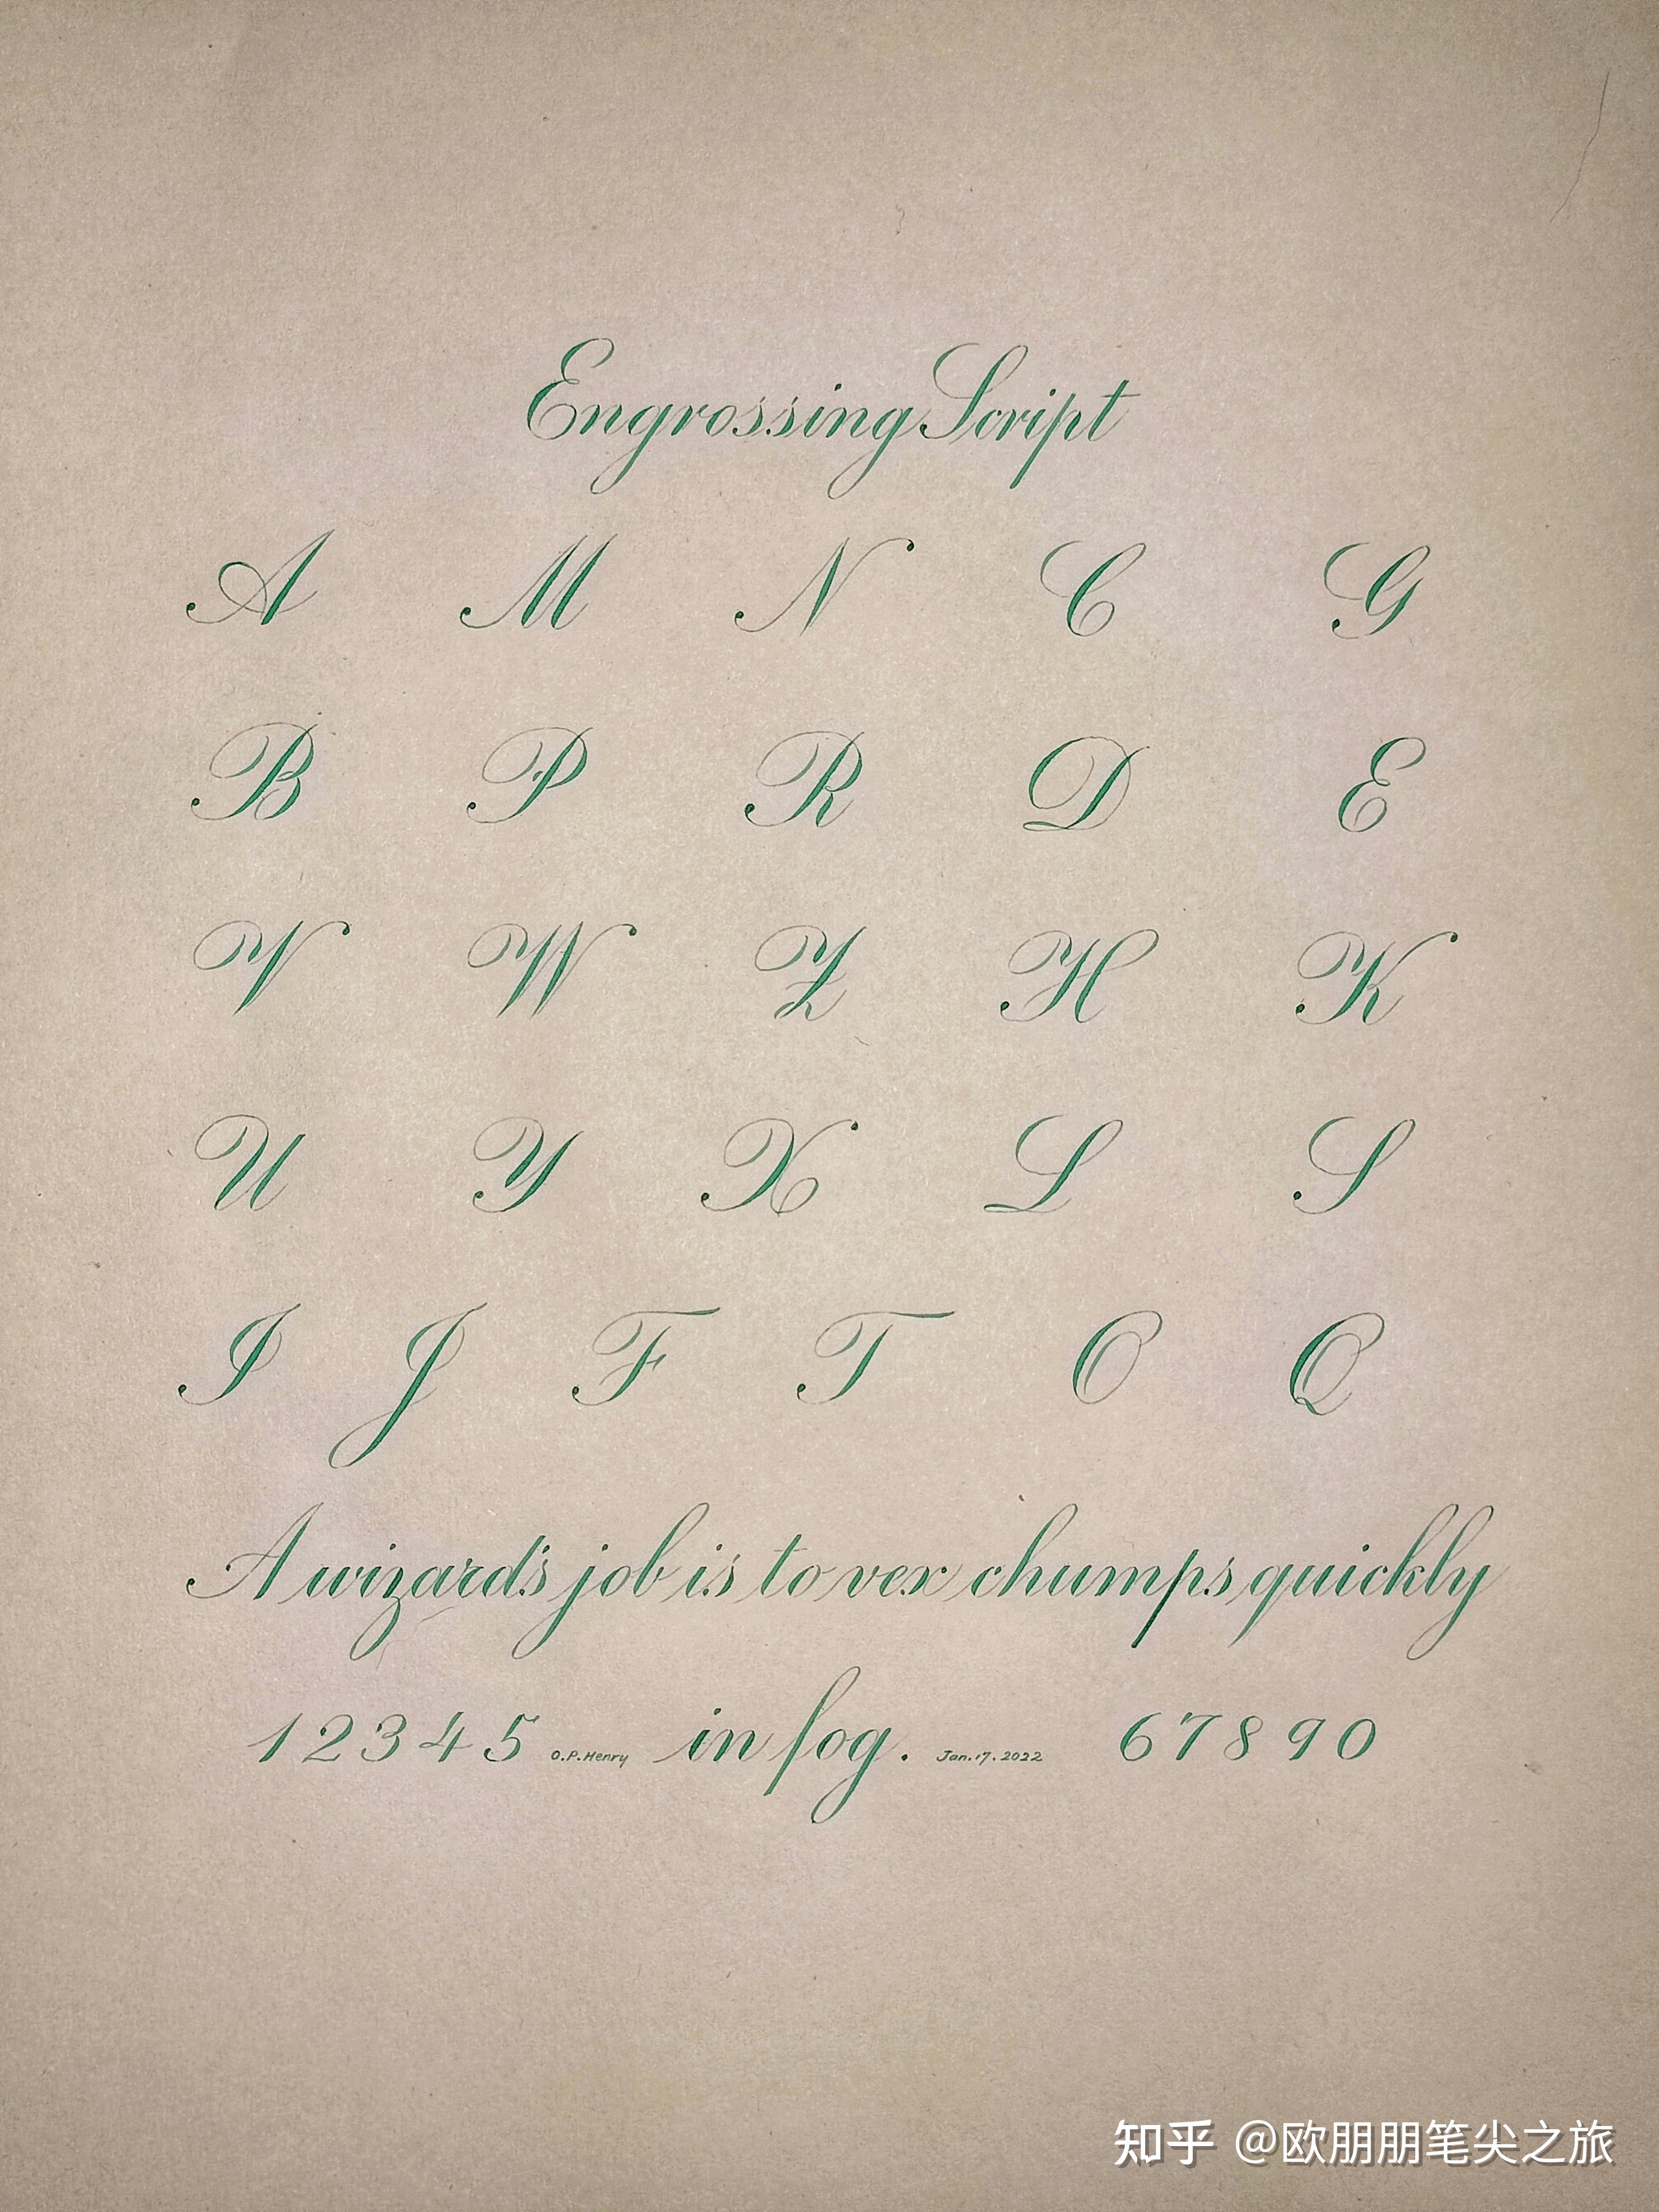 Engrossing Script
A M N C G
B P R D E
V W Z H K
U Y X L S
I J F T O Q
A wizard's job is to vex chumps quickly
1 2 3 4 5 O.P.Henry in fog. Jan.17.2022 6 7 8 9 0
知乎 @欧朋朋笔尖之旅